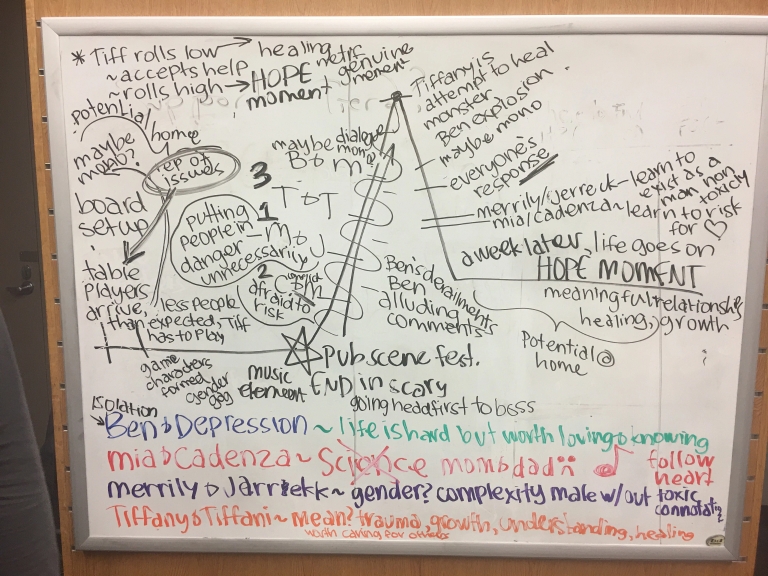 * Tiff rolls low → healing
~ accepts help
~ rolls high → HOPE moment
genuine moment
Tiffany is
attempt to heal
monster
Ben explosion
maybe mono
everyone's
response
merrily/jerreck - learn to
exist as a
man non
toxicly
mia/cadenza ~ learn to risk
for ♡
a week later, life goes on
HOPE MOMENT
meaningful relationships
healing, growth
Potential @
home
potential
home
maybe
rep of
issues
board
setup
table
players
arrive,
less people
than expected, Tiff
has to play
game
characters
formed
gender
gag
music
element
maybe dialogue
B & M
3
T & T
1
putting
people in
danger
unnecessarily
M & J
2
afraid to
risk
C & M
Ben's derailments
Ben
alluding
comments
Pub scene fest.
END in scary
going headfirst to boss
isolation
Ben → Depression ~ life is hard but worth loving & knowing
mia → Cadenza ~ Science mom & dad
follow
heart
merrily & Jarrekk ~ gender? complexity male w/out toxic
Tiffany & Tiffani ~ mean? trauma, growth, understanding, healing
worth caring for others